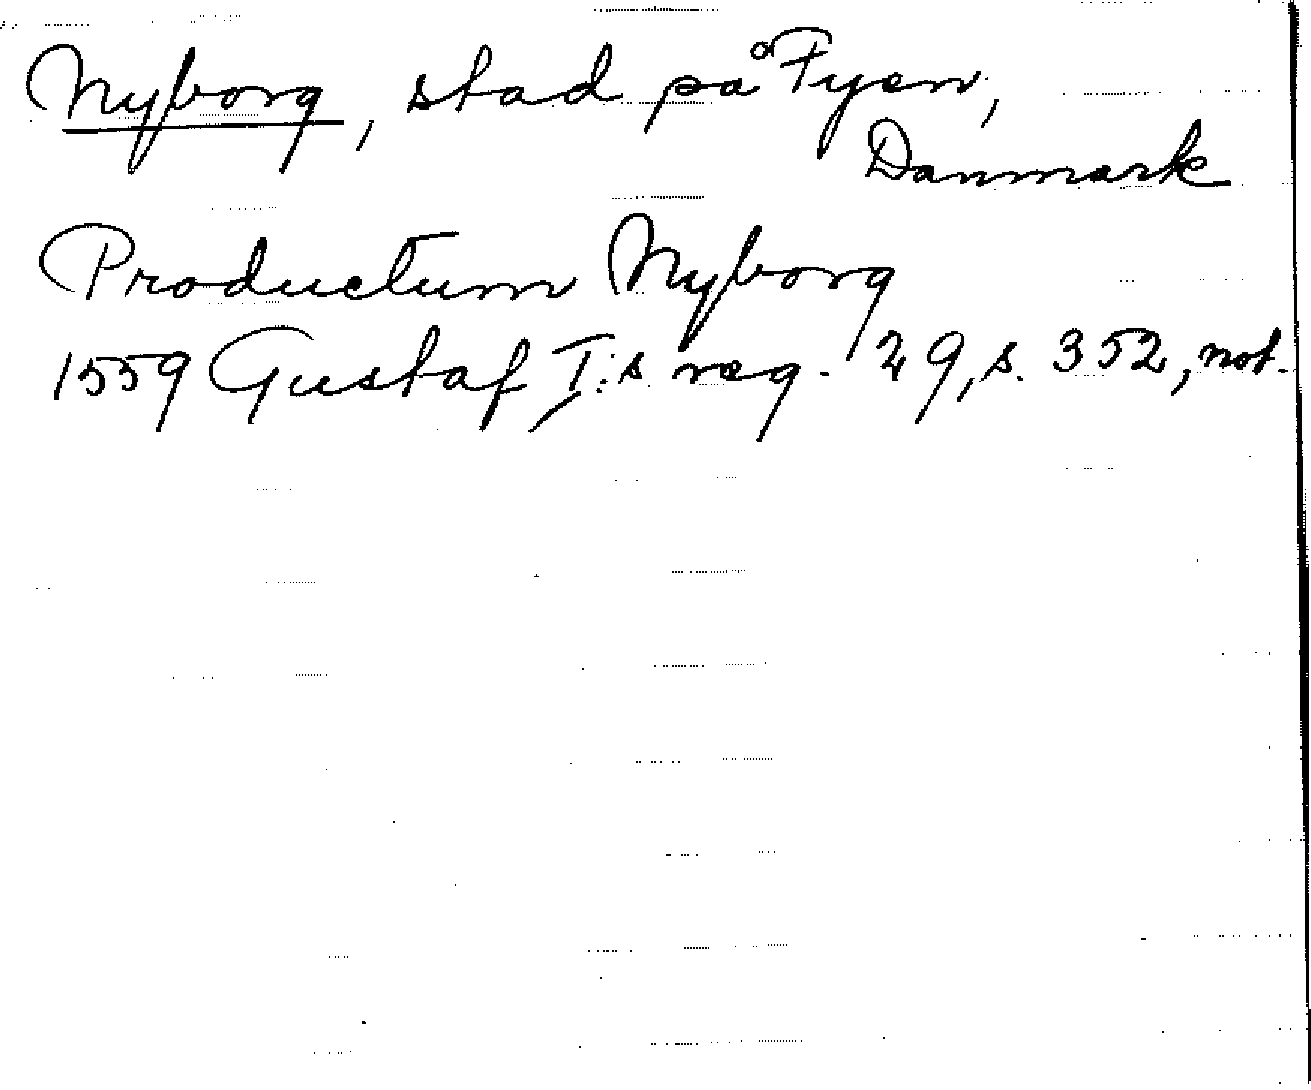 Nyborg, stad på Fyen,
Danmark
Productum Nyborg
1559 Gustaf I:s reg. 29, s. 352, not.